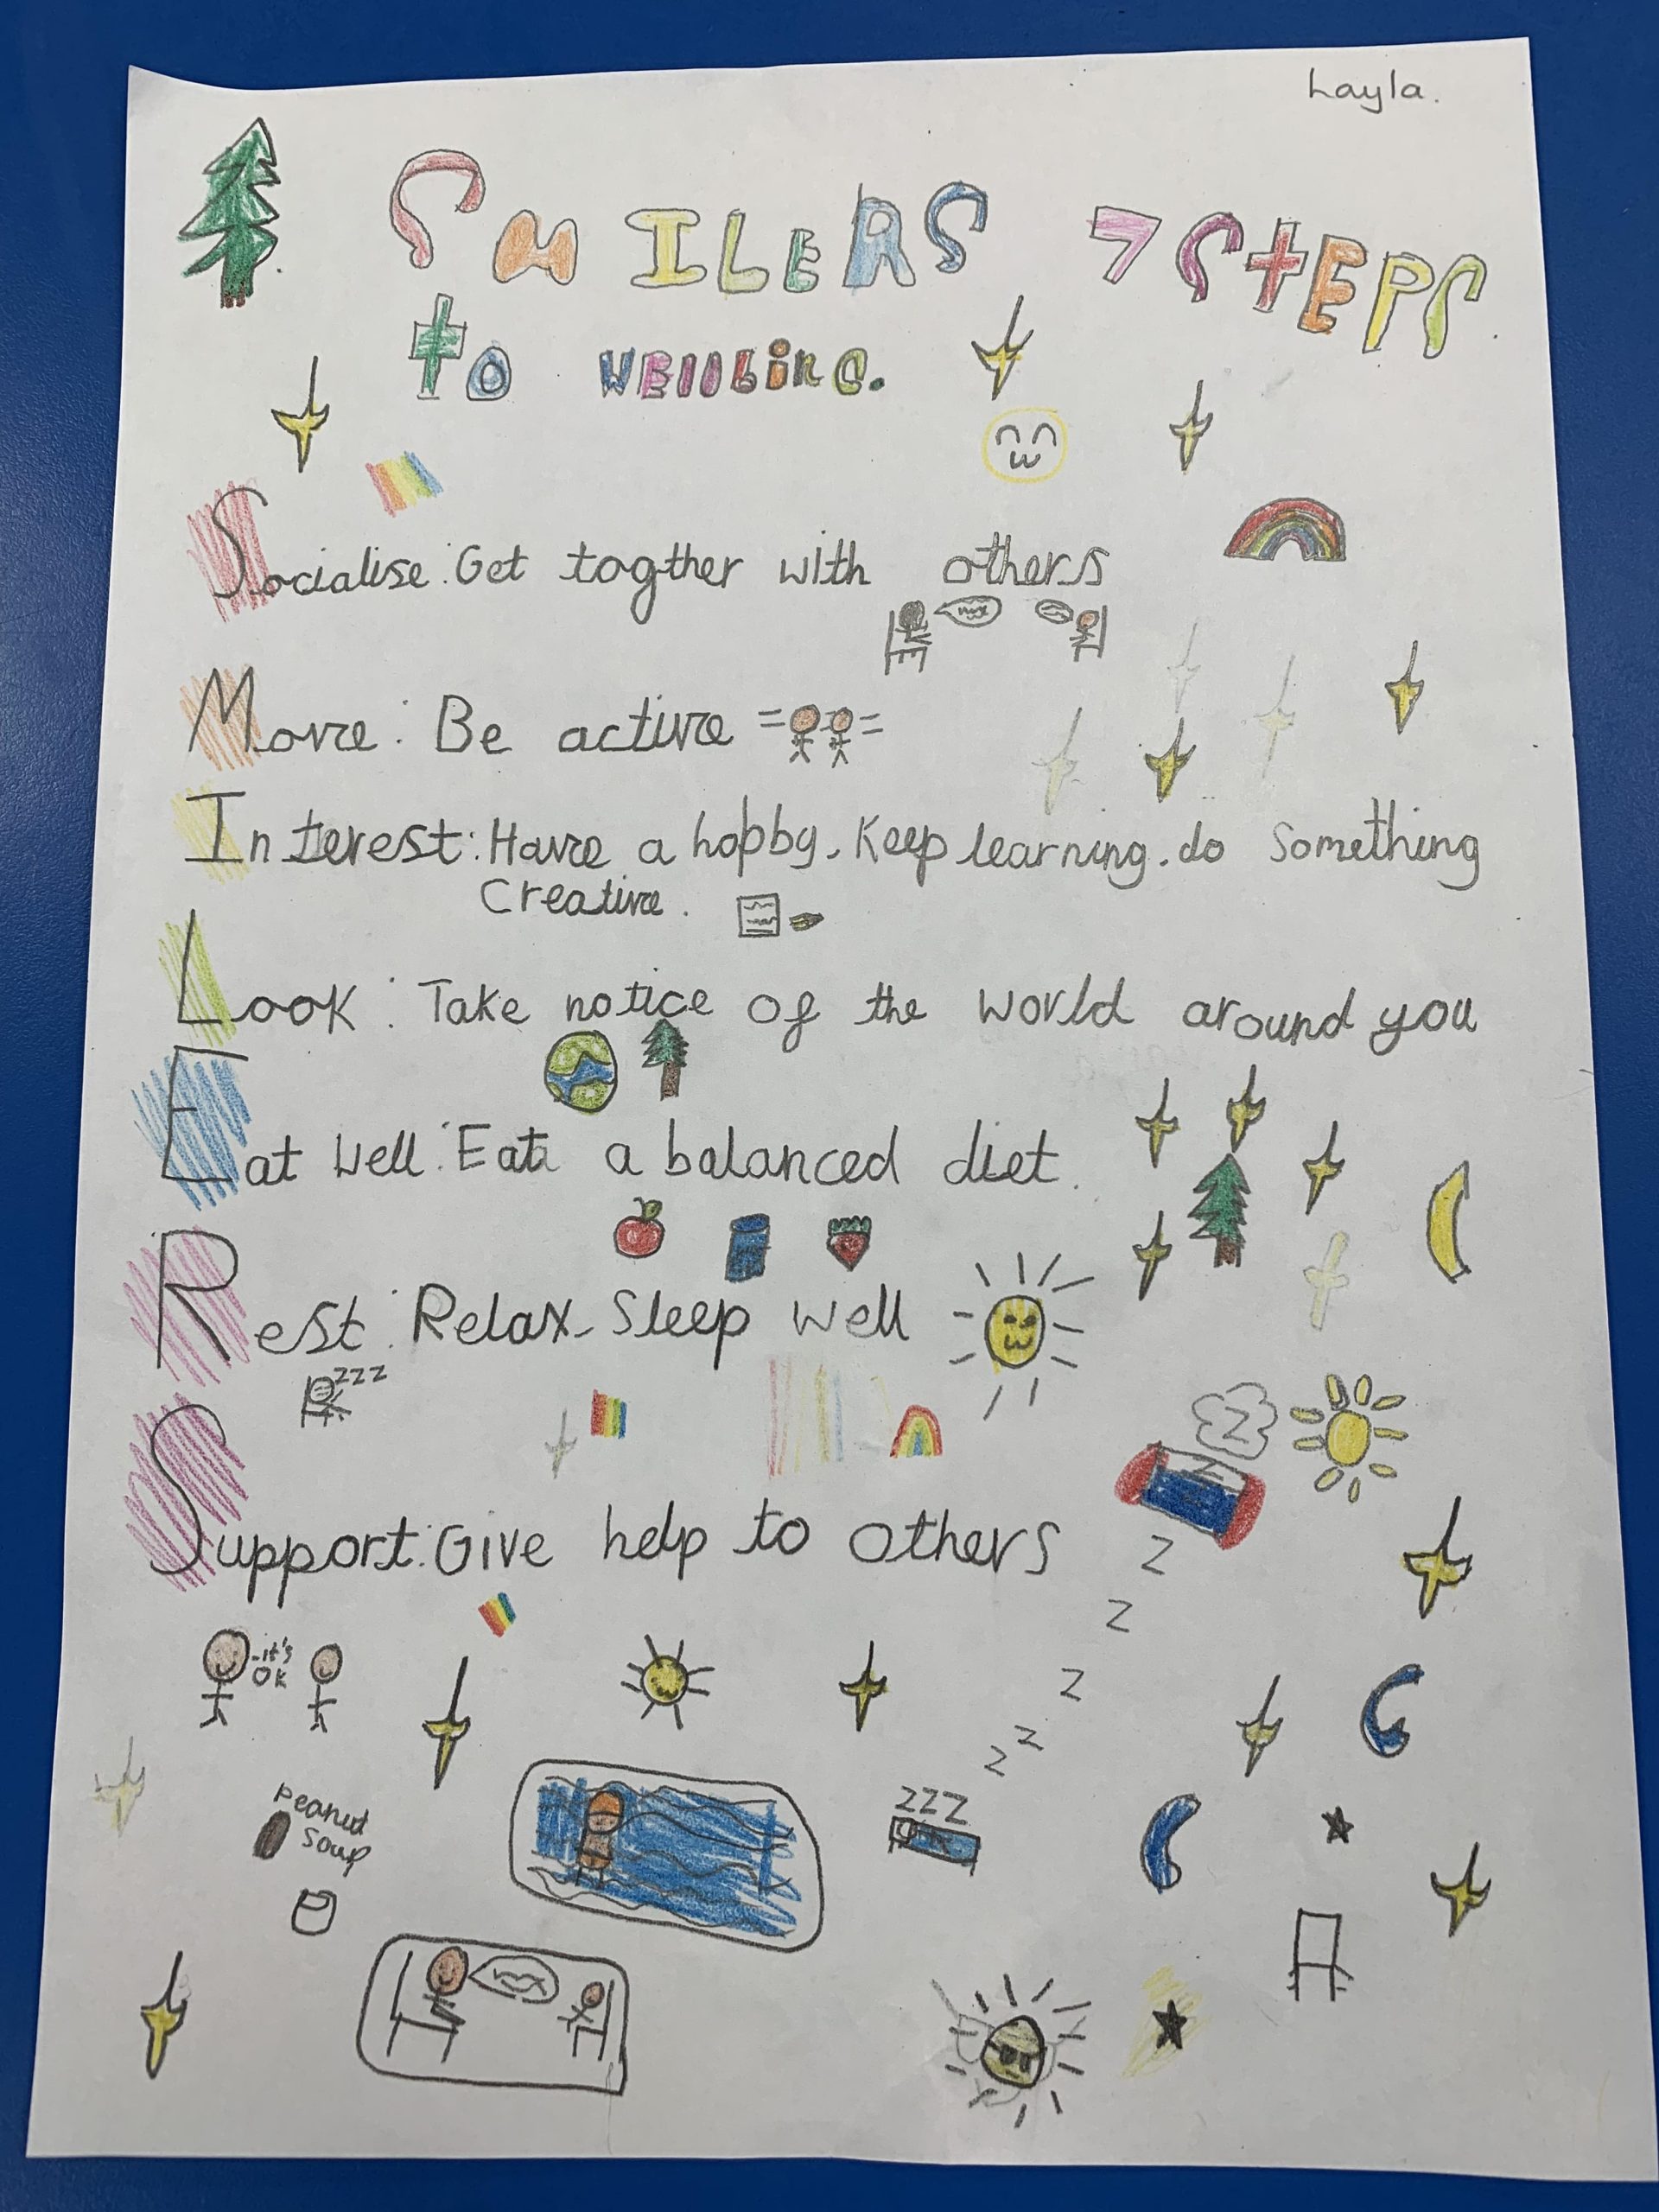 Layla.
SMILERS 7 STEPS
to WEllbinG.
Socialise: Get togther with others
Move: Be active
Interest: Have a hobby. Keep learning. do Something
Creative.
Look: Take notice of the world around you
Eat well: Eat a balanced diet.
Rest: Relax. Sleep well
zzz
Z
Support: Give help to others
Z
Z
it's
OK
Z
Z
Z
peanut
soup
ZZZ